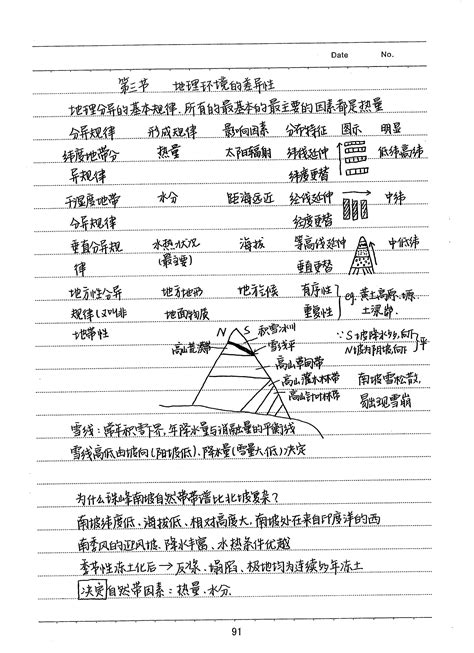 Date No.
第三节 地理环境的差异性
地理分异的基本规律,所有的最基本的最主要的因素都是热量
分异规律 形成规律 影响因素 分异特征 图示 明显
纬度地带分 热量 太阳辐射 纬线延伸 低纬高纬
异规律 纬度更替
干湿度地带 水分 距海远近 经线延伸 中纬
分异规律 经度更替
垂直分异规 水热状况 海拔 等高线延伸 中低纬
律 (最主要) 垂直更替
地方性分异 地方地形 地方气候 有序性 eg. 黄土高原:塬、
规律(又叫非 地面物质 重复性 土梁峁.
地带性 N S 积雪冰川 ∵S坡降水多,向下
高山荒漠 雪线 N坡为阴坡向下
高山草甸带
高山灌木林带 南坡雪松散,
高山针叶林带 易出现雪崩
雪线:常年积雪下界,年降水量与消融量的平衡线
雪线高低由坡向(阳坡低)、降水量(雪量大,低)决定
为什么珠峰南坡自然带带谱比北坡复杂?
南坡纬度低、海拔低、相对高度大,南坡处在来自印度洋的西
南季风的迎风坡,降水丰富、水热条件优越
季节性冻土化后→反涤、塌陷、极地均为连续多年冻土
决定自然带因素:热量、水分.
91